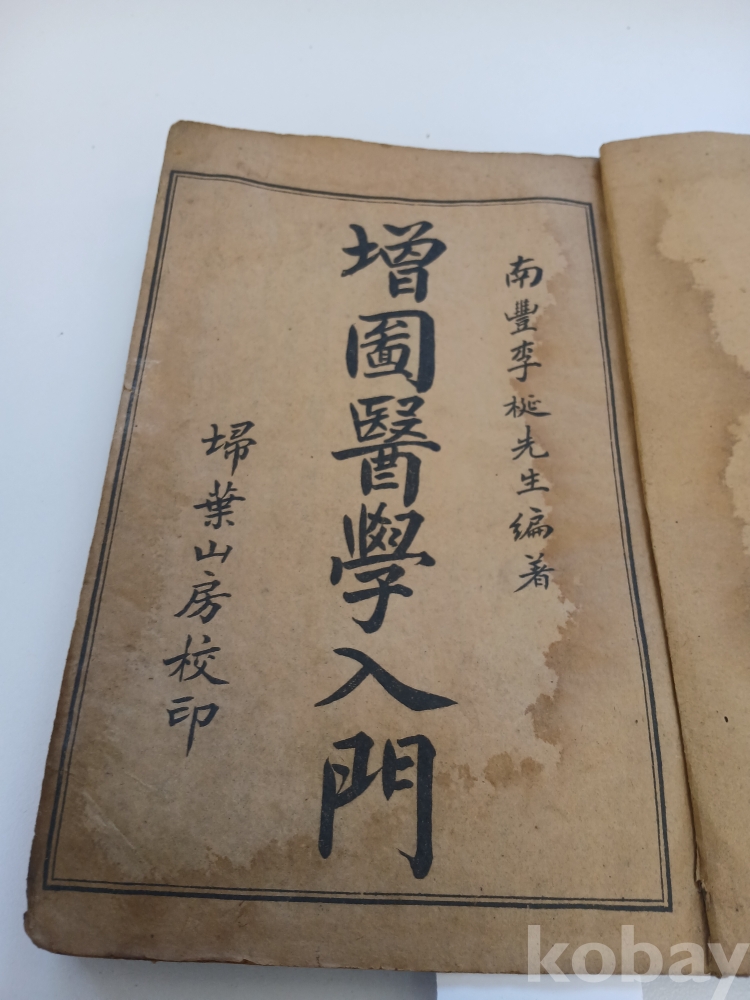 南豐李梴先生編著
增圖醫學入門
埽葉山房校印
kobay